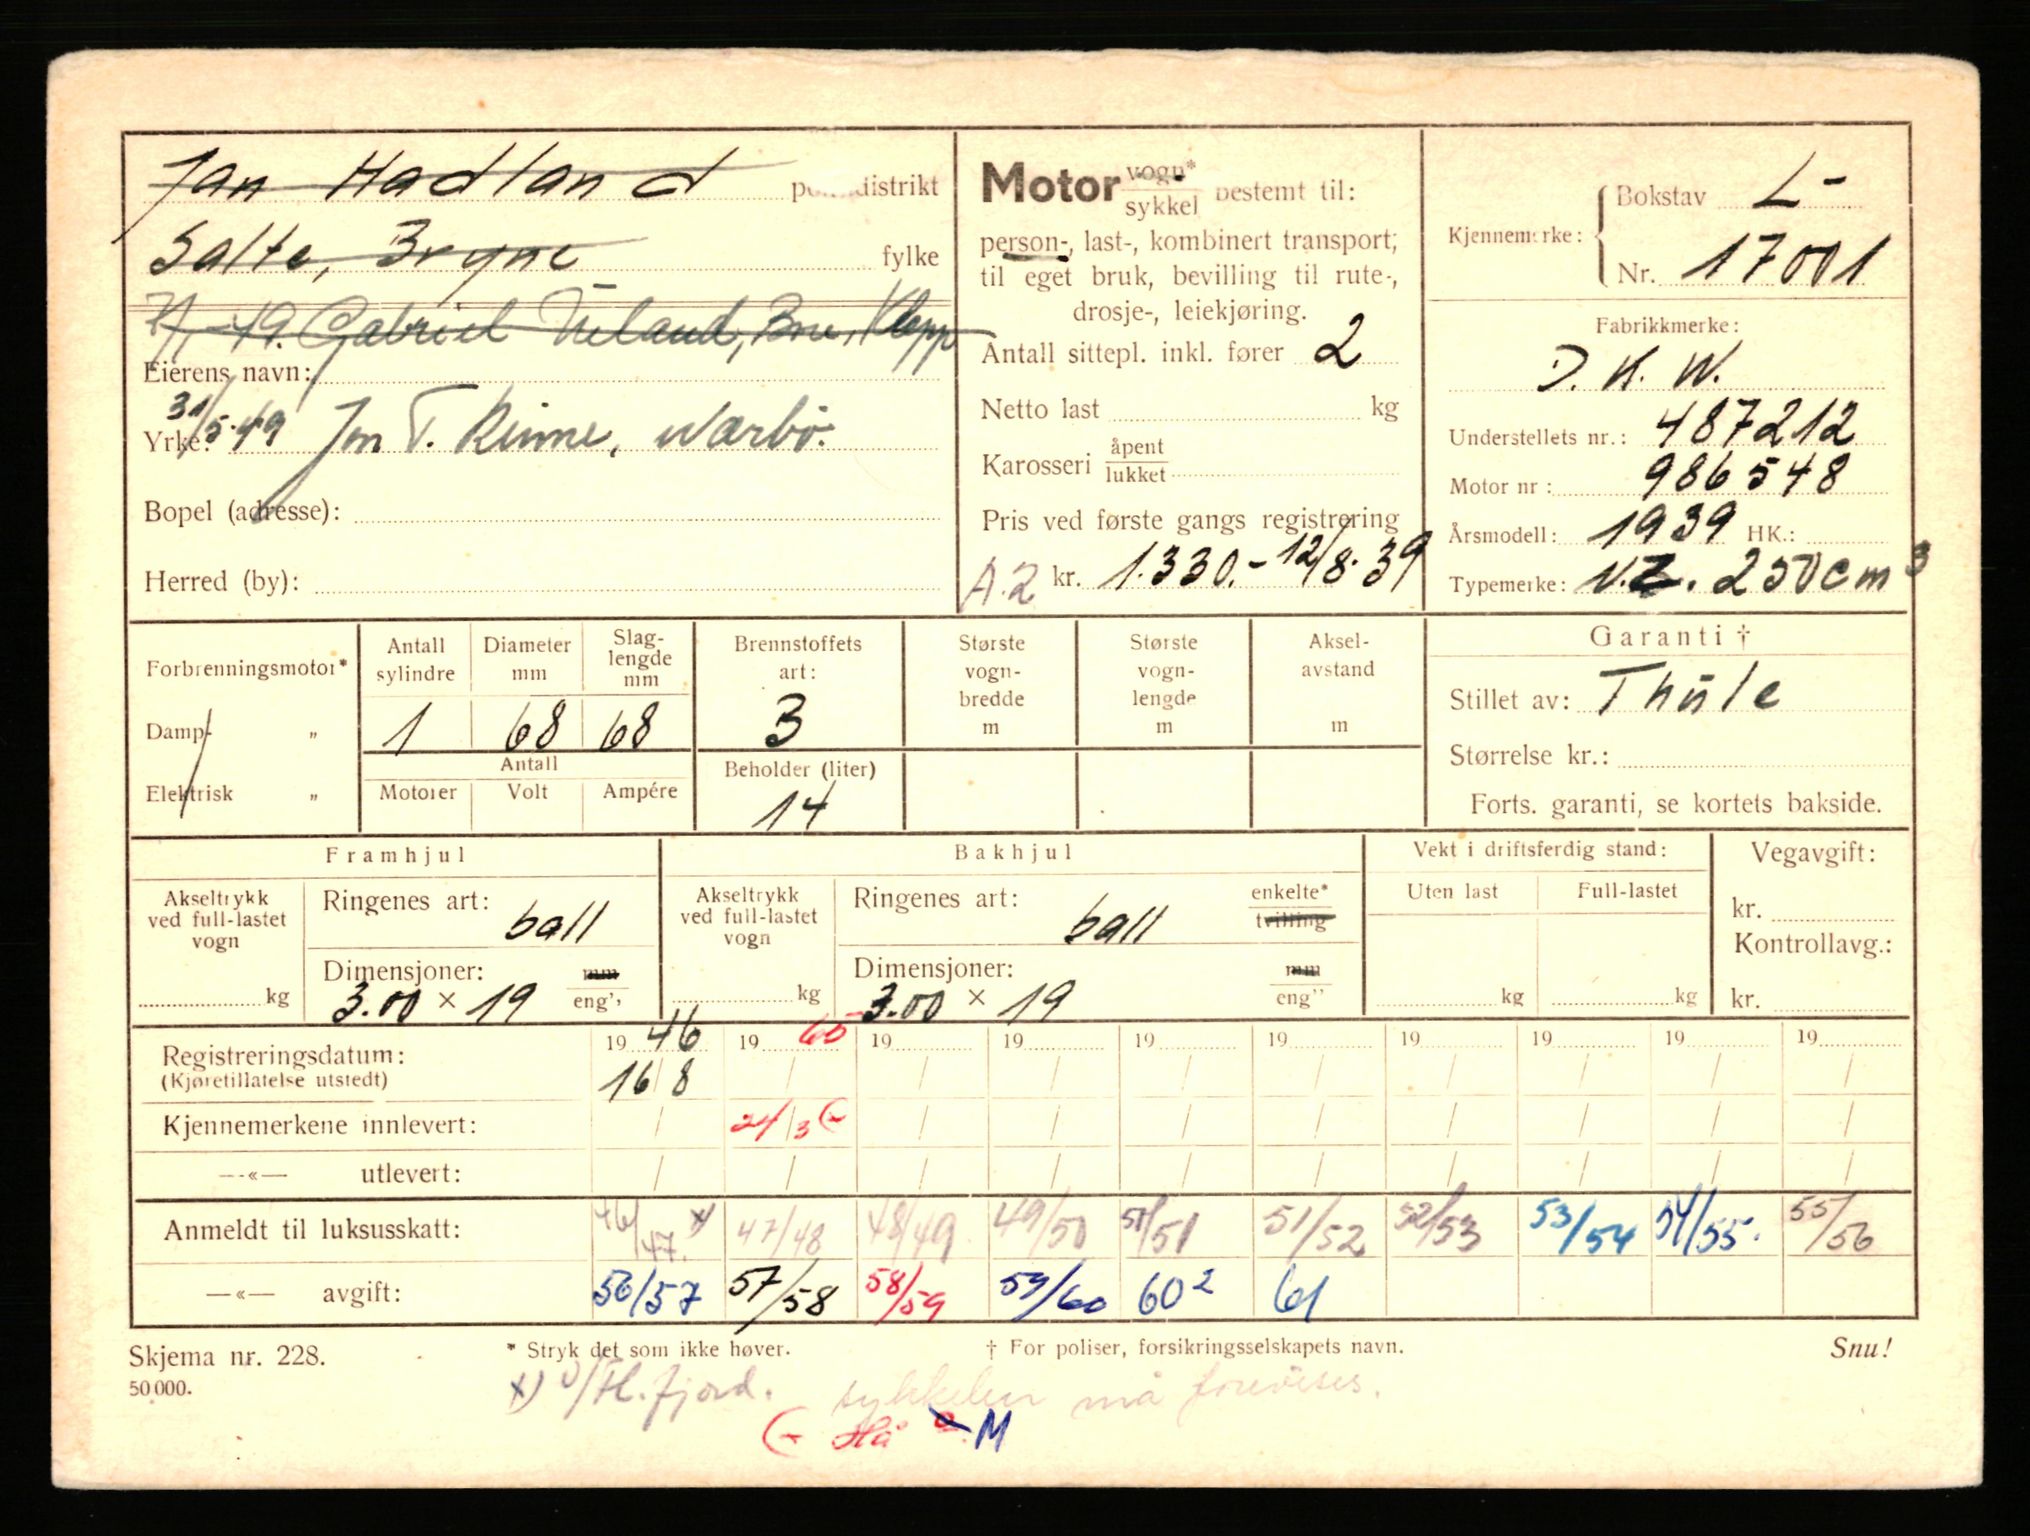 Jan Hadland politidistrikt
Salte, Bryne fylke
49. Gabriel Ueland, Bore, Klepp
Eierens navn:
31/5-49 Jon T. Rimme, Nærbø.
Yrke:
Bopel (adresse):
Herred (by):
Motor vogn* sykkel bestemt til:
person-, last-, kombinert transport;
til eget bruk, bevilling til rute-,
drosje-, leiekjøring.
Antall sittepl. inkl. fører 2
Netto last kg
Karosseri åpent lukket
Pris ved første gangs registrering
A.2 kr. 1.330.- 12/8.39
Kjennemerke: Bokstav L-
Nr. 17001
Fabrikkmerke:
D. K. W.
Understellets nr.: 487212
Motor nr: 986548
Årsmodell: 1939 HK.:
Typemerke: N.Z. 250 cm3
Forbrenningsmotor*
Damp- "
Elektrisk "
Antall sylindre 1
Diameter mm 68
Slaglengde mm 68
Antall
Motorer Volt Ampére
Brennstoffets art: 3
Beholder (liter) 14
Største vogn-bredde m
Største vogn-lengde m
Aksel-avstand m
Garanti †
Stillet av: Thule
Størrelse kr.:
Forts. garanti, se kortets bakside.
Framhjul
Akseltrykk ved full-lastet vogn kg
Ringenes art: ball
Dimensjoner: mm eng"
3.00 × 19
Bakhjul
Akseltrykk ved full-lastet vogn kg
Ringenes art: ball enkelte* tvilling
Dimensjoner: mm eng"
3.00 × 19
Vekt i driftsferdig stand:
Uten last Full-lastet
kg kg
Vegavgift:
kr.
Kontrollavg.:
kr.
Registreringsdatum: 19 46 19 65 19 19 19 19 19 19 19 19
(Kjøretillatelse utstedt) 16/8
Kjennemerkene innlevert: 24/3
—«— utlevert:
Anmeldt til luksusskatt: 46/47. x) 47/48 48/49 49/50 50/51 51/52 52/53 53/54 54/55. 55/56
—«— avgift: 56/57 57/58 58/59 59/60 60² 61
Skjema nr. 228. * Stryk det som ikke høver. † For poliser, forsikringsselskapets navn. Snu!
50 000.
x) sykkelen må forevises.
Hå M